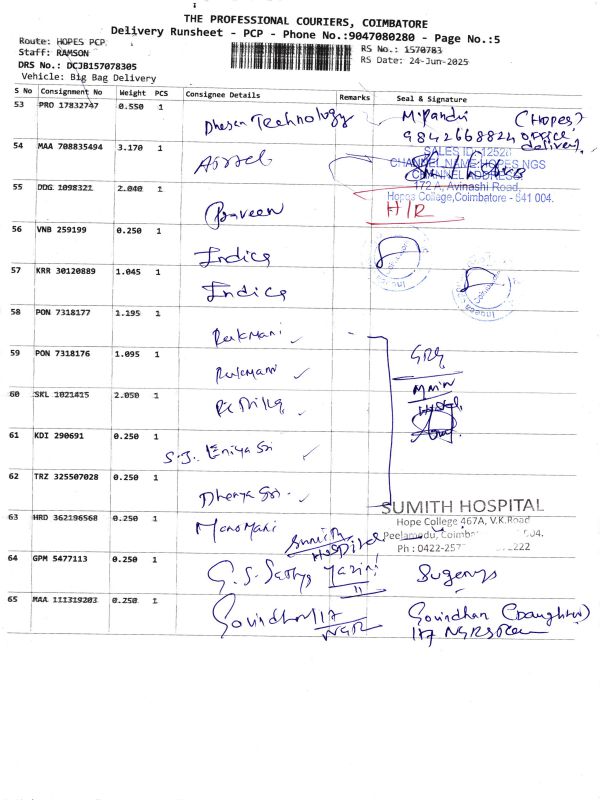 THE PROFESSIONAL COURIERS, COIMBATORE
Delivery Runsheet - PCP - Phone No.:9047080280 - Page No.:5
Route: HOPES PCP
Staff: RAMSON
DRS No.: DCJB157078305
Vehicle: Big Bag Delivery
RS No.: 1570783
RS Date: 24-Jun-2025
S No Consignment No Weight PCS Consignee Details Remarks Seal & Signature
53 PRO 17832747 0.550 1 Technology M.Pandi (Hopes)
9842668824 office delivery
54 MAA 708835494 3.170 1 Airtel
SALES ID:12520
CHANNEL NAME:HOPES NGS
CHANNEL ADDRESS
172 A, Avinashi Road,
Hopes College,Coimbatore - 641 004.
55 DDG 1098321 2.040 1 Praveen H/R
56 VNB 259199 0.250 1 Indica
57 KRR 30120889 1.045 1 Indica
58 PON 7318177 1.195 1 Rukmani
59 PON 7318176 1.095 1 Rukmani GRG
Main
Hostel
60 SKL 1021415 2.050 1
61 KDI 290691 0.250 1 S.J. Eniya Sri
62 TRZ 325507028 0.250 1 Dhanya Sri.
SUMITH HOSPITAL
Hope College 467A, V.K.Road
Peelamedu, Coimbatore
Ph : 0422-257
63 HRD 362196568 0.250 1 Manomani Sumith Hospital
64 GPM 5477113 0.250 1 G. S. Sathya
65 MAA 111319203 0.250 1 Govindhan 117 NGR Govindhan (Daughter)
117 NGR